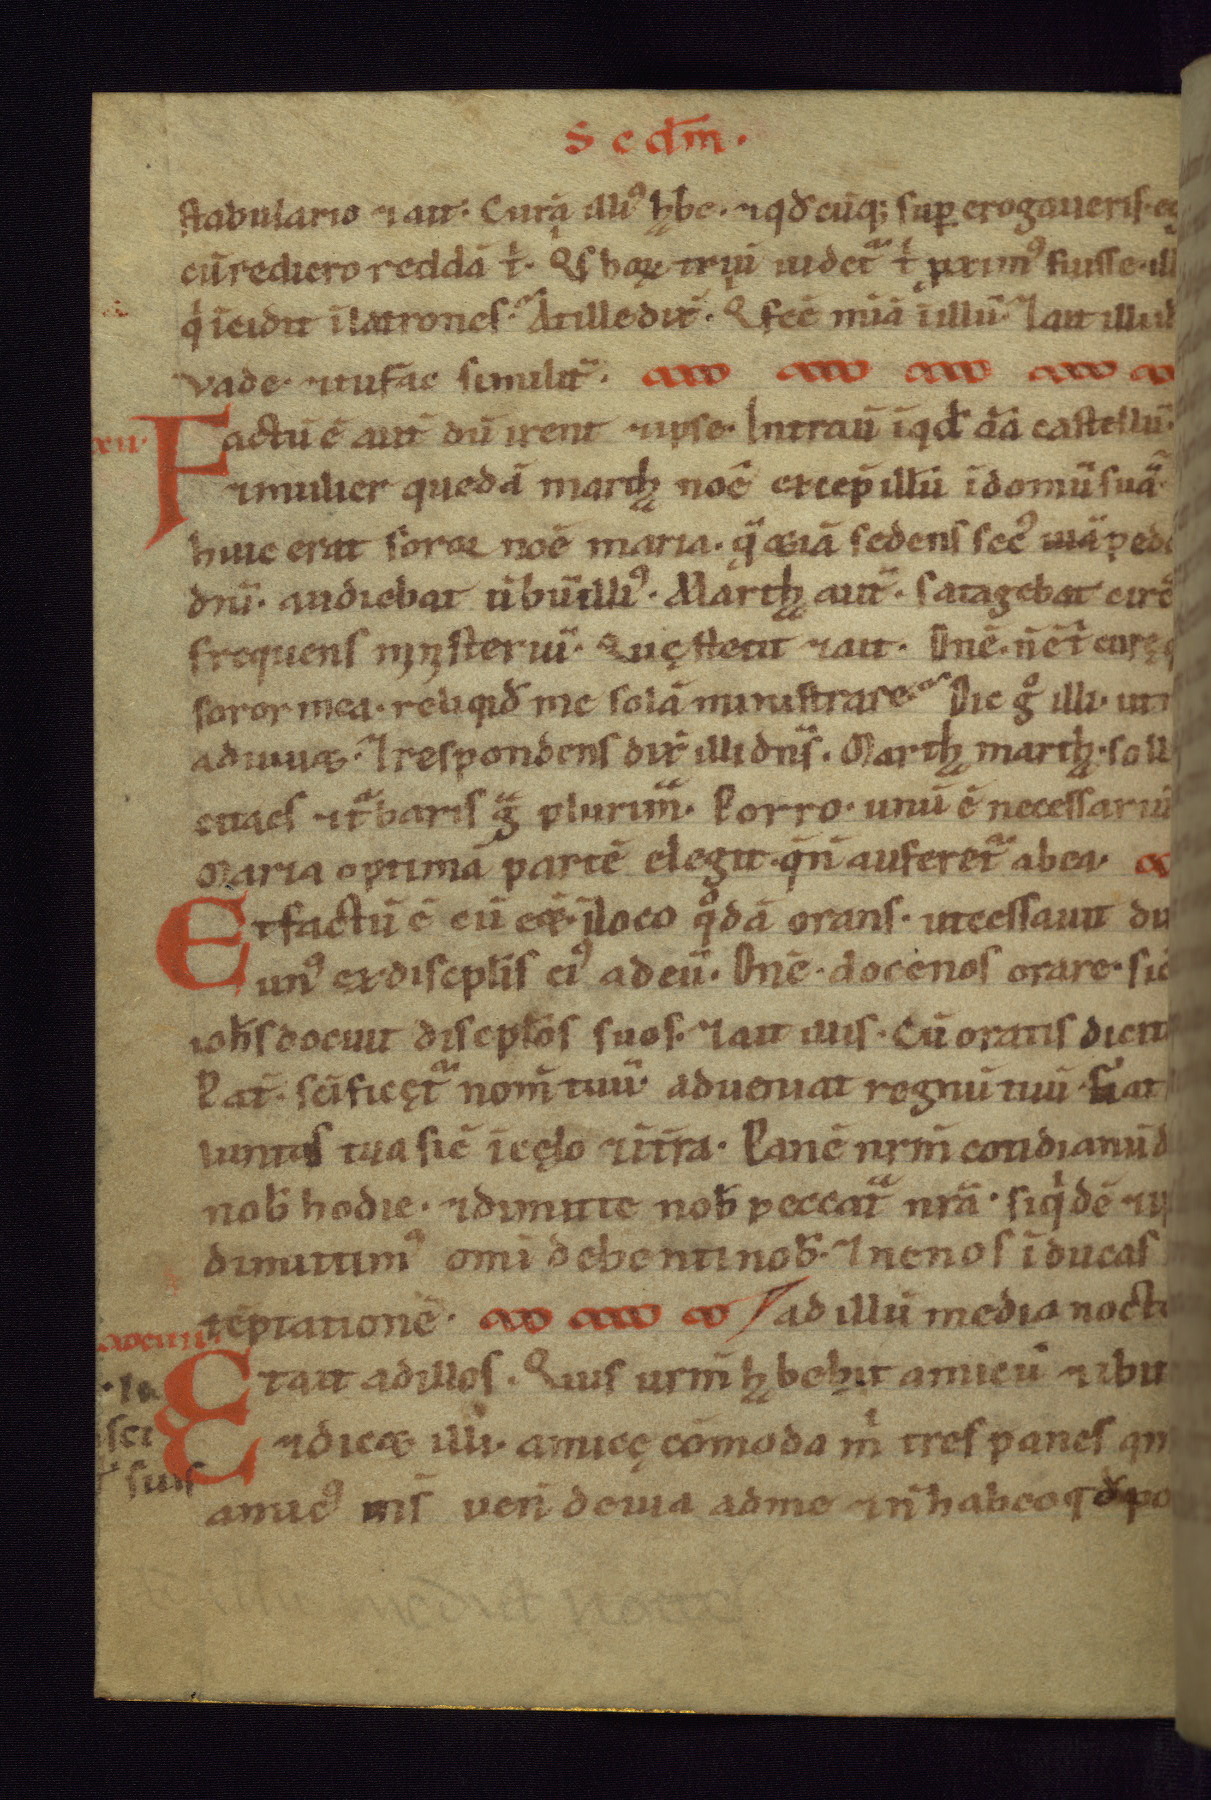 Scdm̄.
stabulario ⁊ait. Curā illi᷒ hbe. ⁊qđcūq; suꝑerogaueris. eg
cū rediero reddā t̄. Qs hoꝝ triū uidet̄ t̄ ꝓxim᷒ fuisse. ill
q̄ īcidit ī latrones. At ille dix̄. Q fec̄ miā ī illū. ⁊ait illi ih
vade. ⁊tu fac similit̄.
xii.
Factū ē aut̄ dū irent ⁊ipse. Intrauı̄ īqđdā castellū.
⁊mulier quedā marth noē excep̄ illū ī domū suā.
huic erat soror noē maria. q̄ &iā sedens sec᷒ pede
dnı̄. audiebat ūbū illi᷒. Marth aut̄. satagebat circ̄
frequens mynsteriū. Quę stetit ⁊ait. Dnē. n̄ ē t̄ curę q
soror mea. reliqıđ me solā ministrare. Dic g᷒ illi. ut
adiuu&. ⁊respondens dix̄ illi dn̄s. Marth marth. soll
citaes ⁊t̄baris ḡ plurim̄. Porro. unū ē necessariū
Maria optimā partē elegit. q̄ n̄ auferet̄ ab ea.
Et factū ē cū eē. ī loco q̄dā orans. ut cessauit dix
un᷒ ex discplis ei᷒ ad eū. Dnē. doce nos orare. sic̄
ioh̄s docuit discplos suos. ⁊ait illis. Cū oratis dicit
Pat̄. sc̄ificęt̄ nom̄ tuū. adueniat regnū tuū. fiat
luntas tua sic̄ ī cęlo ⁊ī t̄ra. Panē nrm̄ cotidianū d
nob̄ hodie. ⁊dimitte nob̄ peccat̄ nrā. siq̄dē ⁊ip
dimittim᷒ omī debenti nob̄. ⁊ne nos īducas
tēptationē. ad illū media nocte
Et ait ad illos. Quis urm̄ hbebit amicū ⁊ibit
⁊dic& illi. amicę cōmoda m̄ tres panes qm
amic᷒ m̄s uen̄ de uia ad me ⁊n̄ habeo qđ po
sci
suis
illū media nocte